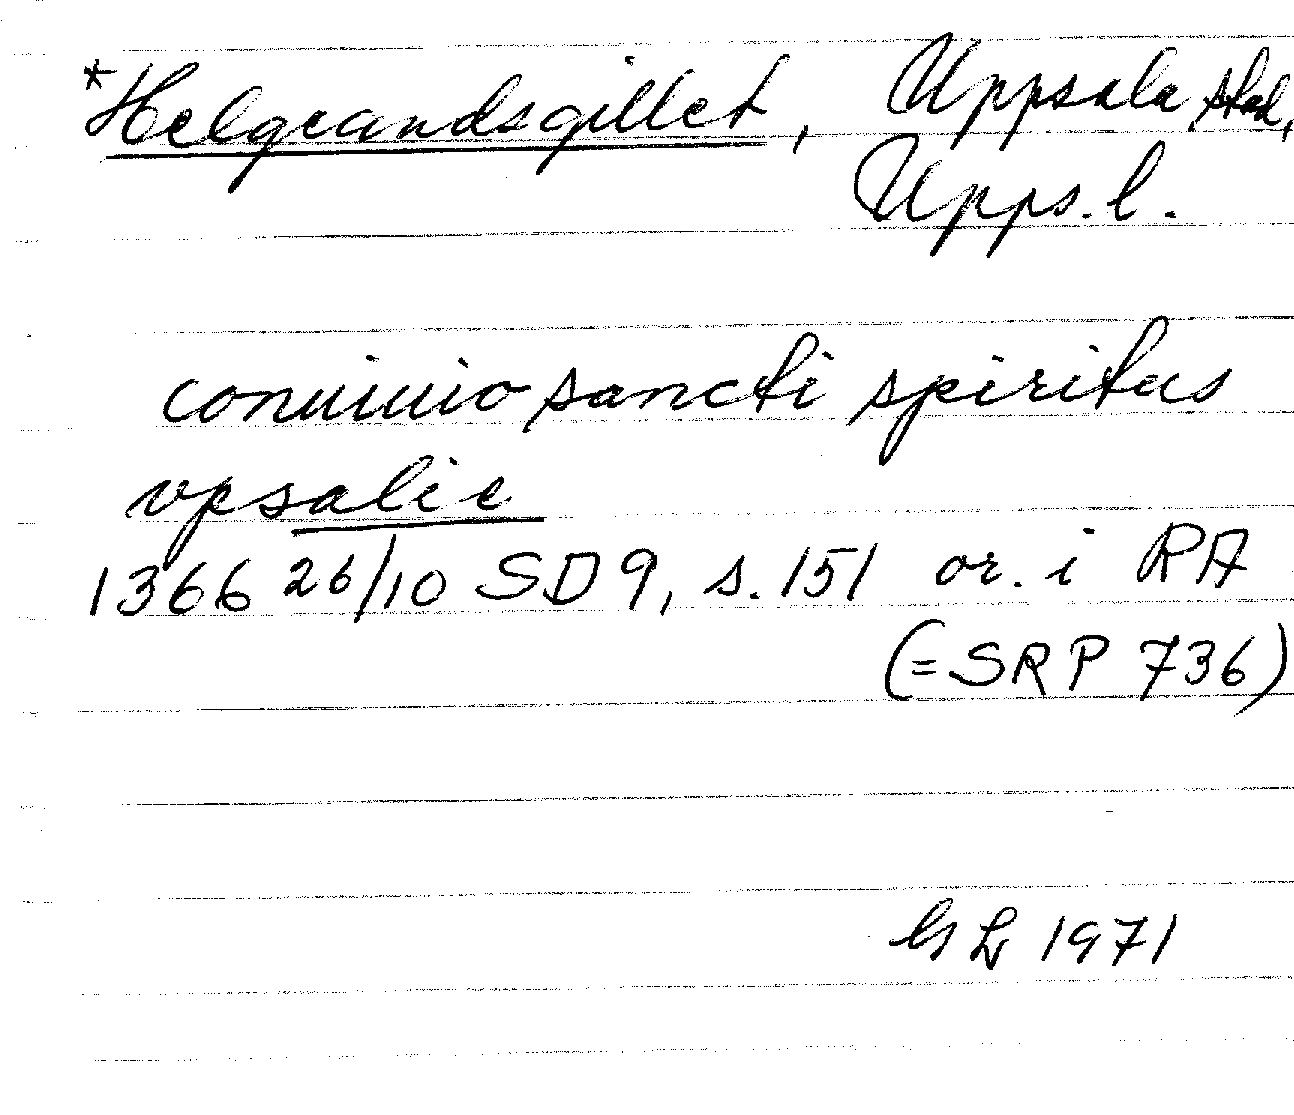 *Helgeandsgillet, Uppsala stad,
Upps. l.
conuiuio sancti spiritus
vpsalie
1366 26/10 SD 9, s. 151 or. i RA
(= SRP 736)
GL 1971